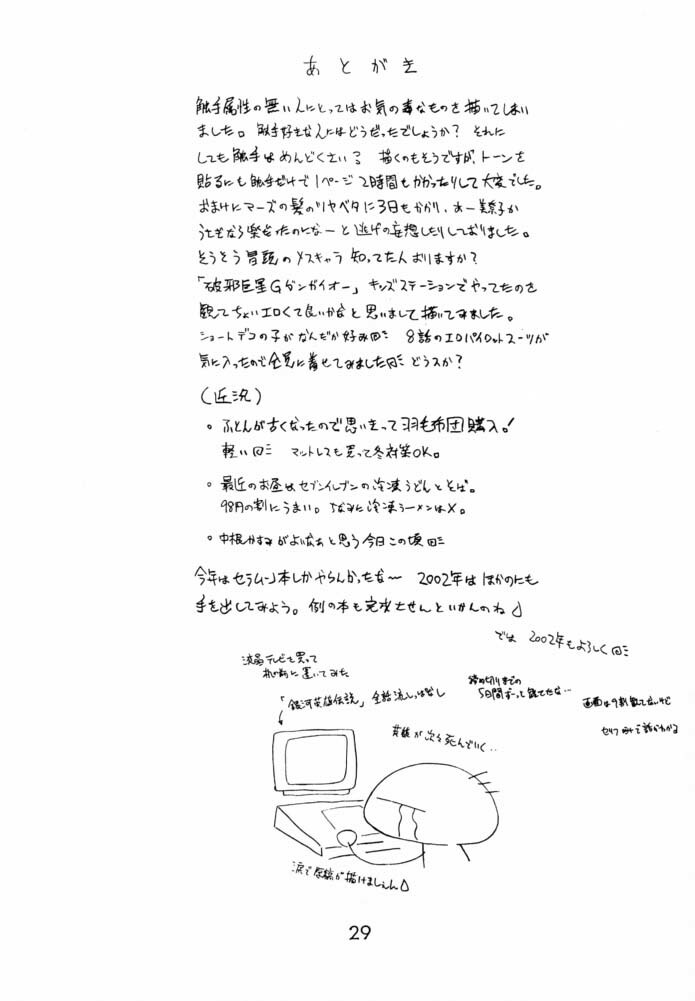 あとがき
触手属性の無い人にとってはお気の毒なものを描いてしまい
ました。触手好きな人にはどうだったでしょうか？ それに
しても触手はめんどくさい？ 描くのもそうですが、トーンを
貼るにも触手だけで1ページ2時間もかかったりして大変でした。
おまけにマーズの髪のツヤベタに3日もかかり、あー美奈子か
うさぎなら楽だったのになーと逃げの妄想したりしておりました。
そうそう冒頭のメスキャラ知ってた人おりますか？
「破邪巨星Gダンガイオー」キッズステーションでやってたのを
観てちょいエロくて良いかなと思いまして描いてみました。
ショートデコの子がなんだか好み 8話のエロパイロットスーツが
気に入ったので全員に着せてみました どうスか？
（近況）
。ふとんが古くなったので思いきって羽毛布団購入！
軽い マットレスも買って冬対策OK。
。最近のお昼はセブンイレブンの冷凍うどんとそば。
98円の割にうまい。ちなみに冷凍ラーメンは×。
。中根かすみがよいなぁと思う今日この頃
今年はセラムン本しかやらんかったな〜 2002年はほかのにも
手を出してみよう。例の本も完成させんといかんのね
では 2002年もよろしく
液晶テレビを買って
机の前に置いてみた
「銀河英雄伝説」全話流しっぱなし
締め切りまでの
5日間ずーっと観てたな…
画面は9割観てないけど
セリフだけで話がわかる
英雄が次々死んでいく…
涙で原稿が描けましぇん
29